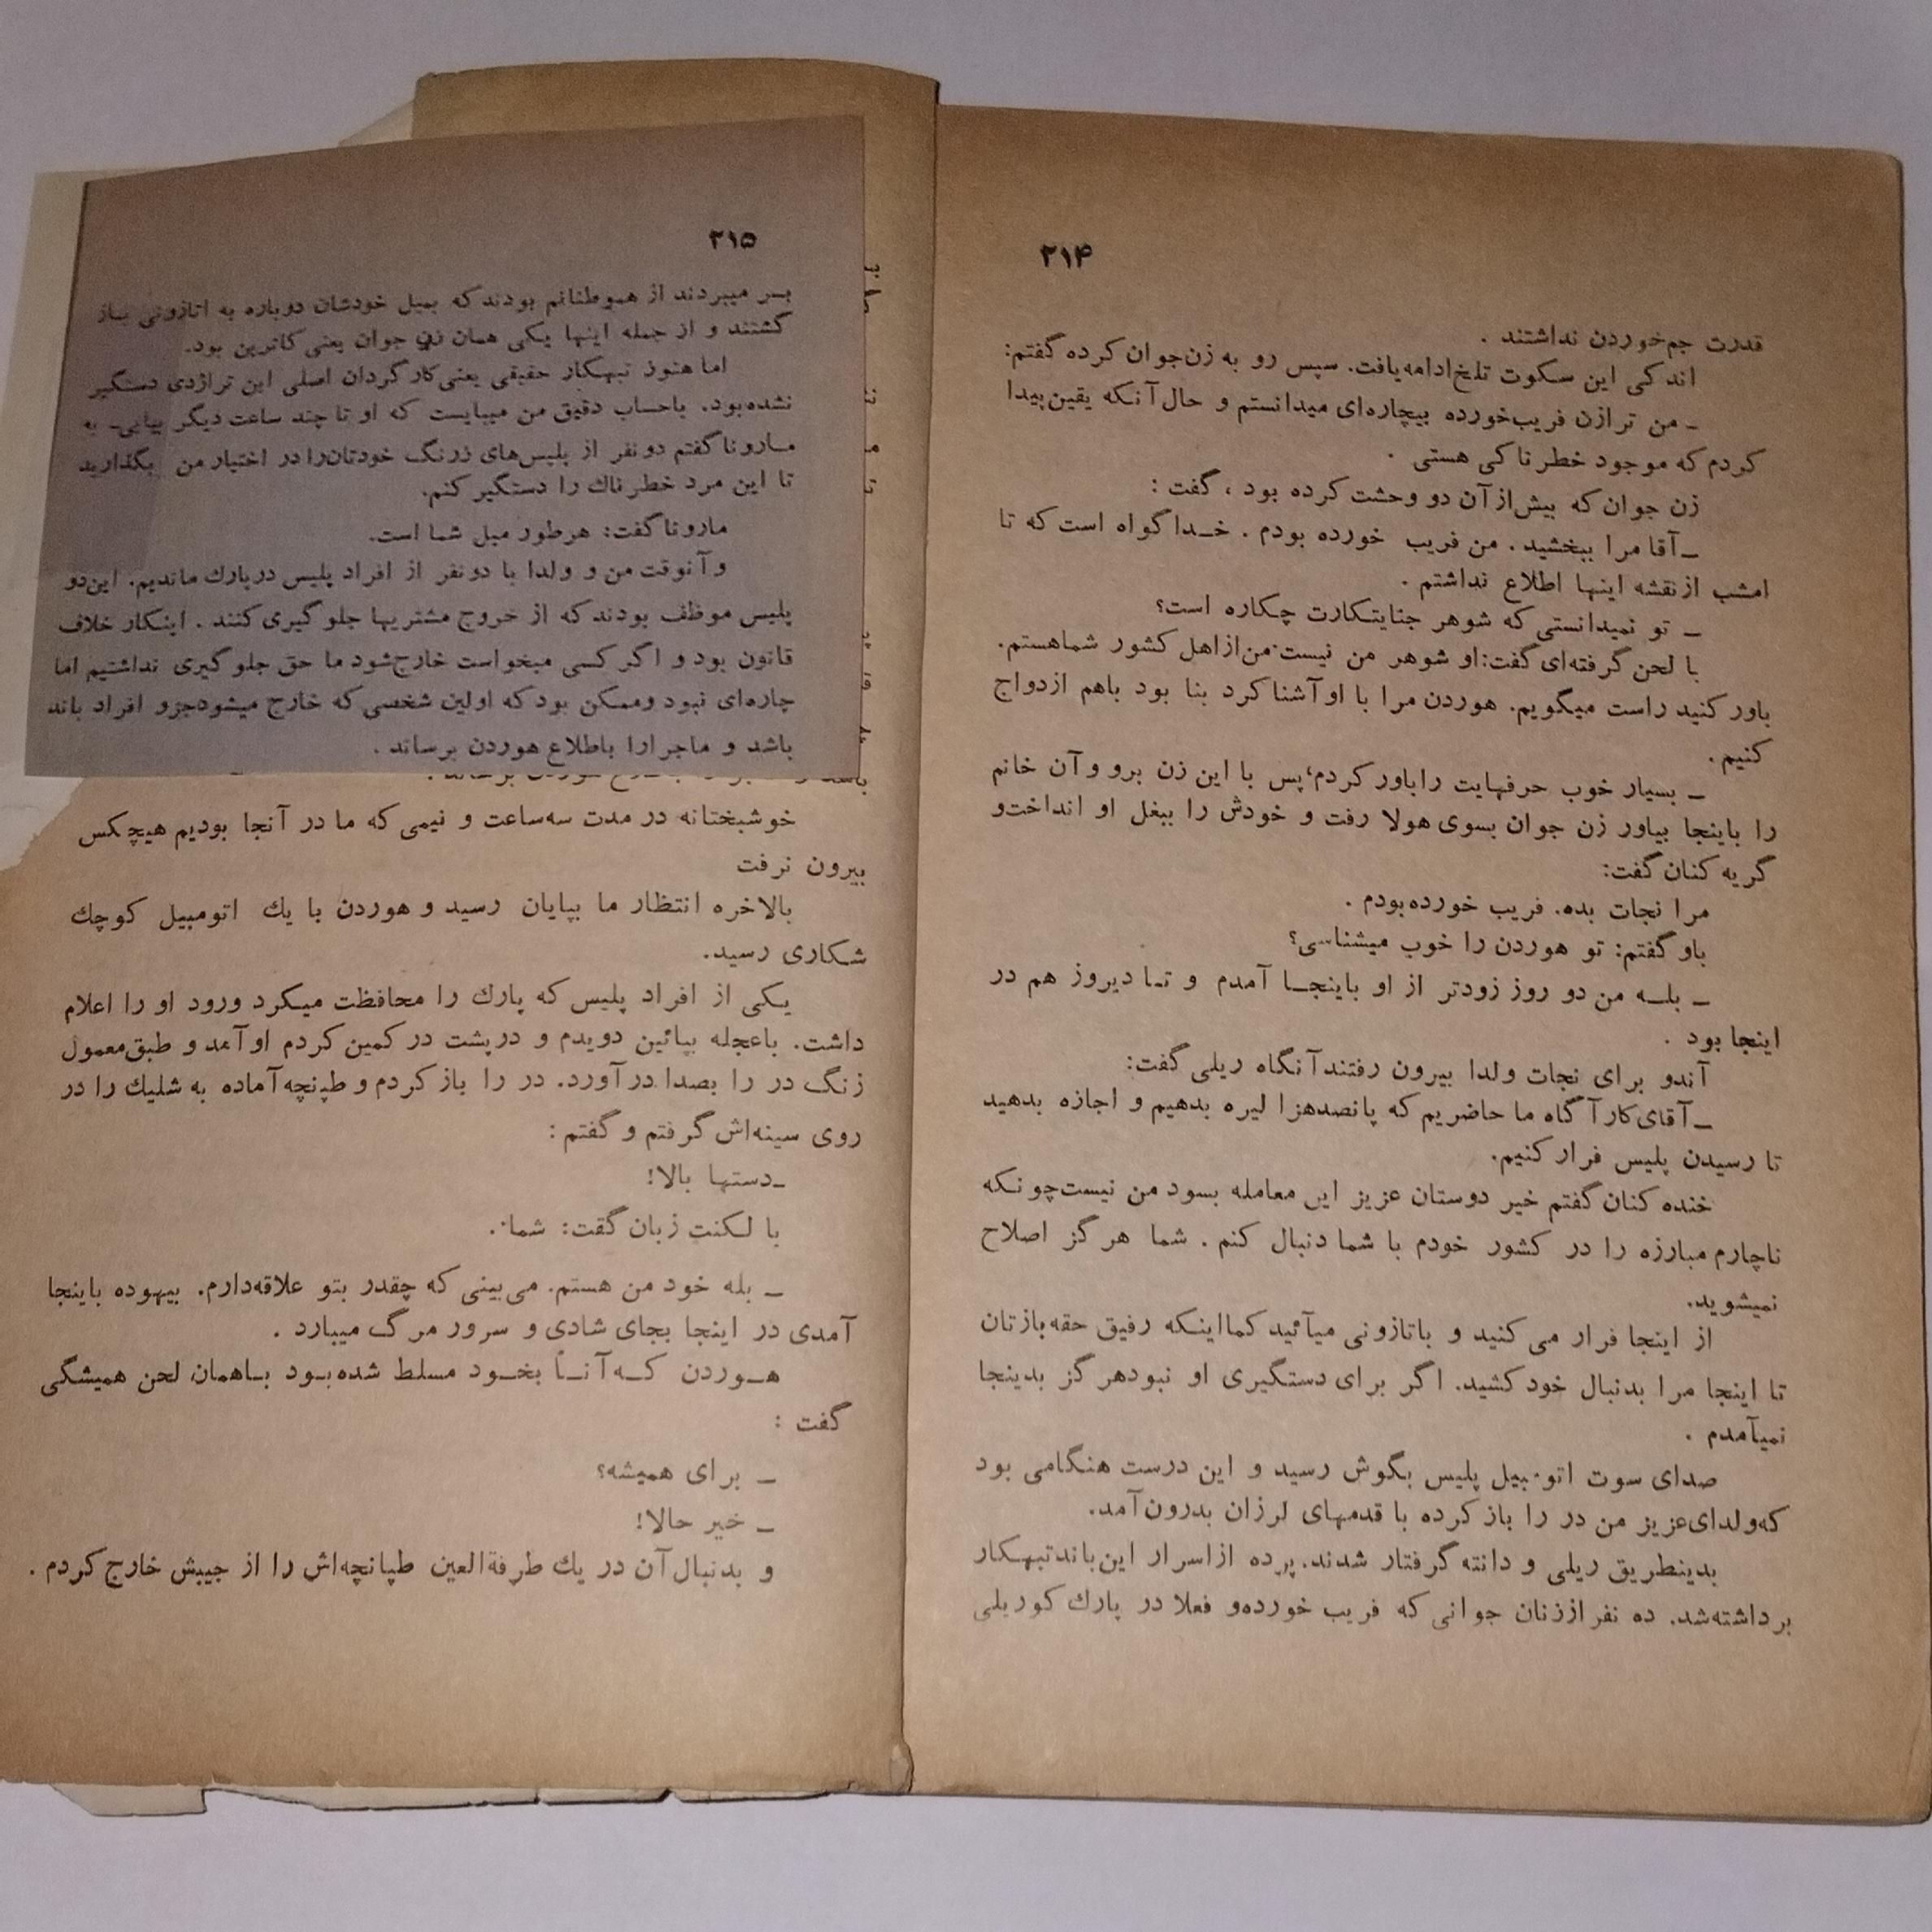 ۲۱۴
قدرت جم‌خوردن نداشتند .
اندکی این سکوت تلخ‌ادامه‌یافت. سپس رو به زن‌جوان کرده گفتم:
ـ من ترازن فریب‌خورده بیچاره‌ای میدانستم و حال‌آنکه یقین‌پیدا
کردم که موجود خطرناکی هستی .
زن جوان که بیش‌ازآن دو وحشت کرده بود ، گفت :
ـ آقا مرا ببخشید. من فریب خورده بودم . خـدا گواه است که تا
امشب ازنقشه اینها اطلاع نداشتم .
ـ تو نمیدانستی که شوهر جنایتکارت چکاره است؟
با لحن گرفته‌ای گفت:او شوهر من نیست.من‌ازاهل کشور شماهستم.
باور کنید راست میگویم. هوردن مرا با اوآشنا کرد بنا بود باهم ازدواج
کنیم .
ـ بسیار خوب حرفهایت راباور کردم؛پس با این زن برو وآن خانم
را باینجا بیاور زن جوان بسوی هولا رفت و خودش را ببغل او انداخت‌و
گریه کنان گفت:
مرا نجات بده. فریب خورده‌بودم .
باو گفتم: تو هوردن را خوب میشناسی؟
ـ بلــه من دو روز زودتر از او باینجــا آمدم و تـا دیروز هم در
اینجا بود .
آندو برای نجات ولدا بیرون رفتندآنگاه ریلی گفت:
ـ آقای‌کارآگاه ما حاضریم که پانصدهزا لیره بدهیم و اجازه بدهید
تا رسیدن پلیس فرار کنیم.
خنده کنان گفتم خیر دوستان عزیز این معامله بسود من نیست‌چونکه
ناچارم مبارزه را در کشور خودم با شما دنبال کنم . شما هرگز اصلاح
نمیشوید.
از اینجا فرار می کنید و باتازونی میآئید کمااینکه رفیق حقه‌بازتان
تا اینجا مرا بدنبال خود کشید. اگر برای دستگیری او نبودهرگز بدینجا
نمیآمدم .
صدای سوت اتومبیل پلیس بگوش رسید و این درست هنگامی بود
که‌ولدای‌عزیز من در را باز کرده با قدمهای لرزان بدرون‌آمد.
بدینطریق ریلی و دانته گرفتار شدند. پرده ازاسرار این‌باندتبهکار
برداشته‌شد. ده نفر اززنان جوانی که فریب خورده‌و فعلا در پارك کوریلی
۲۱۵
بسر میبردند از هموطنانم بودند که بمیل خودشان دوباره به اتازونی بـاز
گشتند و از جمله اینها یکی همان زن جوان یعنی کاترین بود.
اما هنوز تبهکار حقیقی یعنی‌کارگردان اصلی این تراژدی دستگیر
نشده‌بود. باحساب دقیق من میبایست که او تا چند ساعت دیگر بیاید. به
مـارونا گفتم دونفر از پلیس‌های زرنگ خودتان‌را در اختیار من بگذارید
تا این مرد خطرناك را دستگیر کنم.
مارونا گفت: هرطور میل شما است.
وآنوقت من و ولدا با دونفر از افراد پلیس درپارك ماندیم. این‌دو
پلیس موظف بودند که از خروج مشتریها جلوگیری کنند . اینکار خلاف
قانون بود و اگر کسی میخواست خارج‌شود ما حق جلوگیری نداشتیم اما
چاره‌ای نبود وممکن بود که اولین شخصی که خارج میشودجزو افراد باند
باشد و ماجرارا باطلاع هوردن برساند .
خوشبختانه در مدت سه‌ساعت و نیمی که ما در آنجا بودیم هیچکس
بیرون نرفت
بالاخره انتظار ما بپایان رسید و هوردن با یك اتومبیل کوچك
شکاری رسید.
یکی از افراد پلیس که پارك را محافظت میکرد ورود او را اعلام
داشت. باعجله بپائین دویدم و درپشت در کمین کردم اوآمد و طبق‌معمول
زنگ در را بصدا درآورد. در را باز کردم و طپنچه‌آماده به شلیك را در
روی سینه‌اش گرفتم و گفتم :
ـدستها بالا!
با لکنت زبان گقت: شما.
ـ بله خود من هستم. می‌بینی که چقدر بتو علاقه‌دارم. بیهوده باینجا
آمدی در اینجا بجای شادی و سرور مرگ میبارد .
هــوردن کــه‌آنــاً بخــود مسلط شده‌بـود بـاهمان لحن همیشگی
گفت :
ـ برای همیشه؟
ـ خیر حالا!
و بدنبال‌آن در یك طرفةالعین طپانچه‌اش را از جیبش خارج کردم .